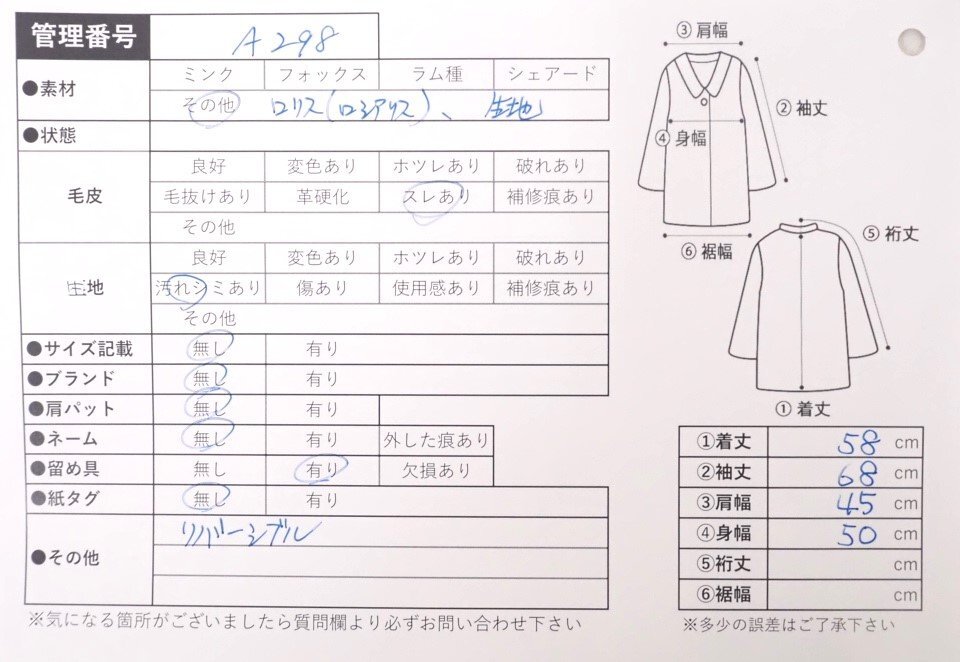 管理番号 A298
●素材 ミンク フォックス ラム種 シェアード
その他 ロリス(ロシアリス)、生地
●状態
毛皮 良好 変色あり ホツレあり 破れあり
毛抜けあり 革硬化 スレあり 補修痕あり
その他
生地 良好 変色あり ホツレあり 破れあり
汚れシミあり 傷あり 使用感あり 補修痕あり
その他
●サイズ記載 無し 有り
●ブランド 無し 有り
●肩パット 無し 有り
●ネーム 無し 有り 外した痕あり
●留め具 無し 有り 欠損あり
●紙タグ 無し 有り
●その他 リバーシブル
※気になる箇所がございましたら質問欄より必ずお問い合わせ下さい
③肩幅
②袖丈
④身幅
⑥裾幅
⑤裄丈
①着丈
①着丈 58 cm
②袖丈 68 cm
③肩幅 45 cm
④身幅 50 cm
⑤裄丈 cm
⑥裾幅 cm
※多少の誤差はご了承下さい